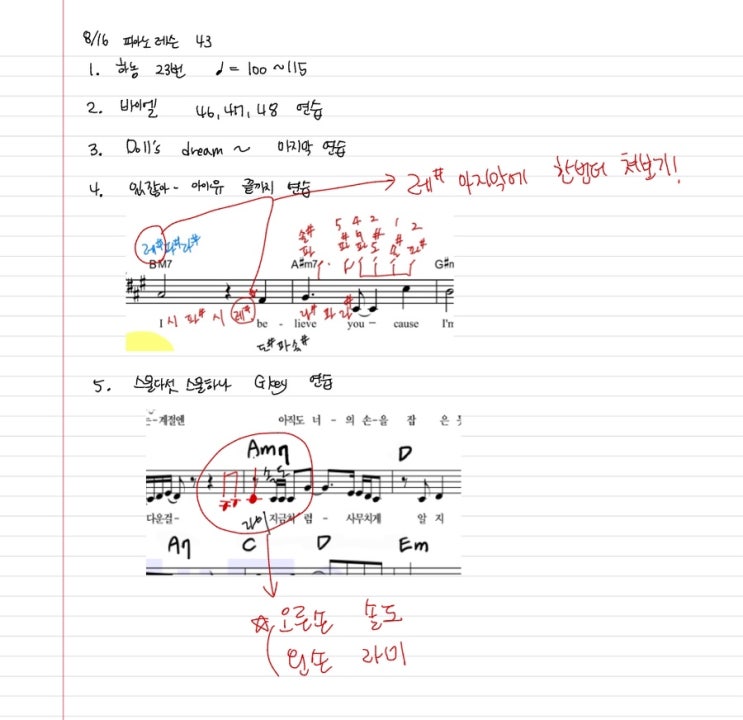 8/16 피아노 레슨 43
1. 하농 23번 ♩= 100 ~115
2. 바이엘 46, 47, 48 연습
3. Doll's dream ~ 마지막 연습
4. 있잖아 - 아이유 끝까지 연습 → 레# 마지막에 한번더 쳐보기!
레# 파# 라#
솔# 5 4 2 1 2
BM7 A#m7 G#m
I 시 파# 시 레# be - lieve you - cause I'm
도# 파 솔#
5. 스물다섯 스물하나 Gkey 연습
는-계절엔 아직도 너 - 의 손-을 잡 은 듯
Am7 D
솔도
다운걸- 라미 지금처 럼 - 사무치게 알 지
A7 C D Em
☆ 오른손 솔도
왼손 라미